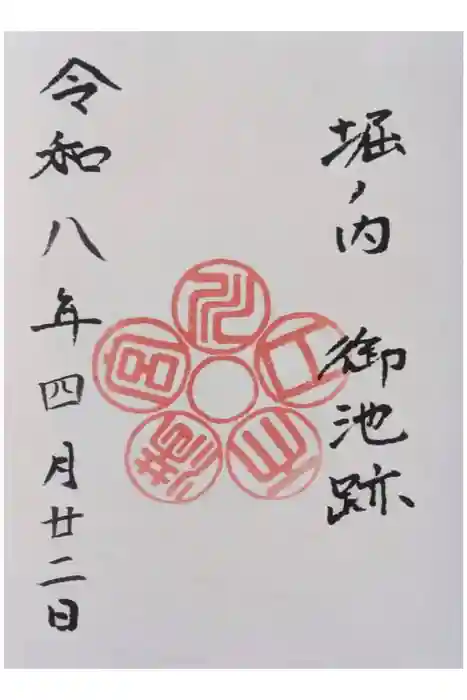 堀ノ内 御池跡
令和八年四月廿二日